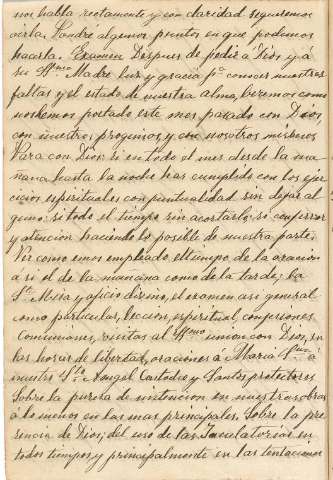 nos habla rectamente y con claridad seguiremos
oirla. Pondre algunos puntos en que podemos
hacerla. Examen Despues de pedir a Dios y á
su Sma Madre luz y gracia pa conocer nuestras
faltas y el estado de nuestra alma, veremos como
nos hemos portado este mes pasado con Dios,
con nuestros progimos, y con nosotros mismos
Para con Dios: si en todo el mes desde la ma-
ñana hasta la noche has cumplido con los ejer-
cicios espirituales con puntualidad sin dejar al-
guno: si todo el tiempo sin acortarlo: si con fervor
y atencion haciendo lo posible de nuestra parte.
Ver como emos empleado el tiempo de la oracion
a si el de la mañana como de la tarde; la
Sta Misa y oficio divino, el examen asi general
como particular, leccion, espiritual, confesiones
Comuniones, visitas al Ssmo union con Dios, en
las horas de libertad, oraciones a Maria Sma á
nuestro Sto Angel Custodio y Santos protectores
Sobre la pureza de intencion en nuestras obras
á lo menos en las mas principales. Sobre la pre-
sencia de Dios; del uso de las Jaculatorias en
todos tiempos y principalmente en las tentaciones